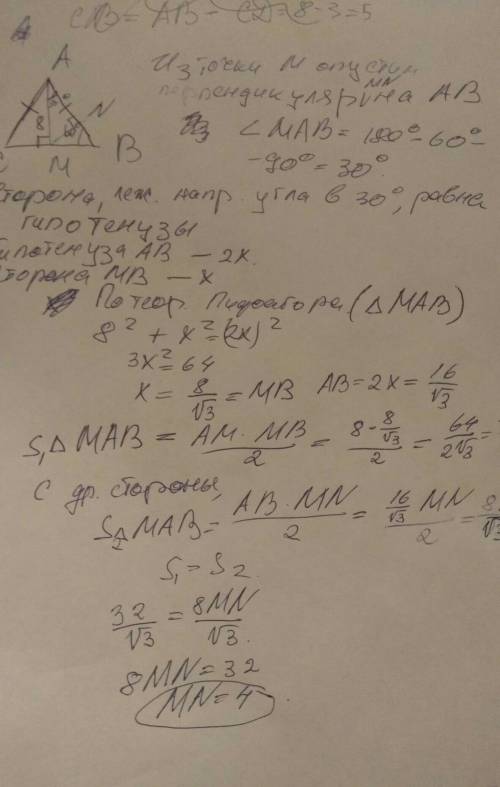 CB = AB - CD = 8 - 3 = 5
A
8
30°
N
60°
C
M
B
Из точки М опустим
перпендикуляр MN на AB
∠MAB = 180° - 60° -
- 90° = 30°.
Сторона, леж. напр. угла в 30°, равна
гипотенузы
Гипотенуза AB – 2x.
Сторона MB – x
По теор. Пифагора (△ MAB)
8² + x² = (2x)²
3x² = 64
x = 8/√3 = MB AB = 2x = 16/√3
S₁△ MAB = AM · MB / 2 = 8 · 8/√3 / 2 = 64/2√3 =
С др. стороны,
S₂△ MAB = AB · MN / 2 = 16/√3 MN / 2 = 8
√3
S₁ = S₂
32/√3 = 8MN/√3.
8MN = 32
MN = 4.